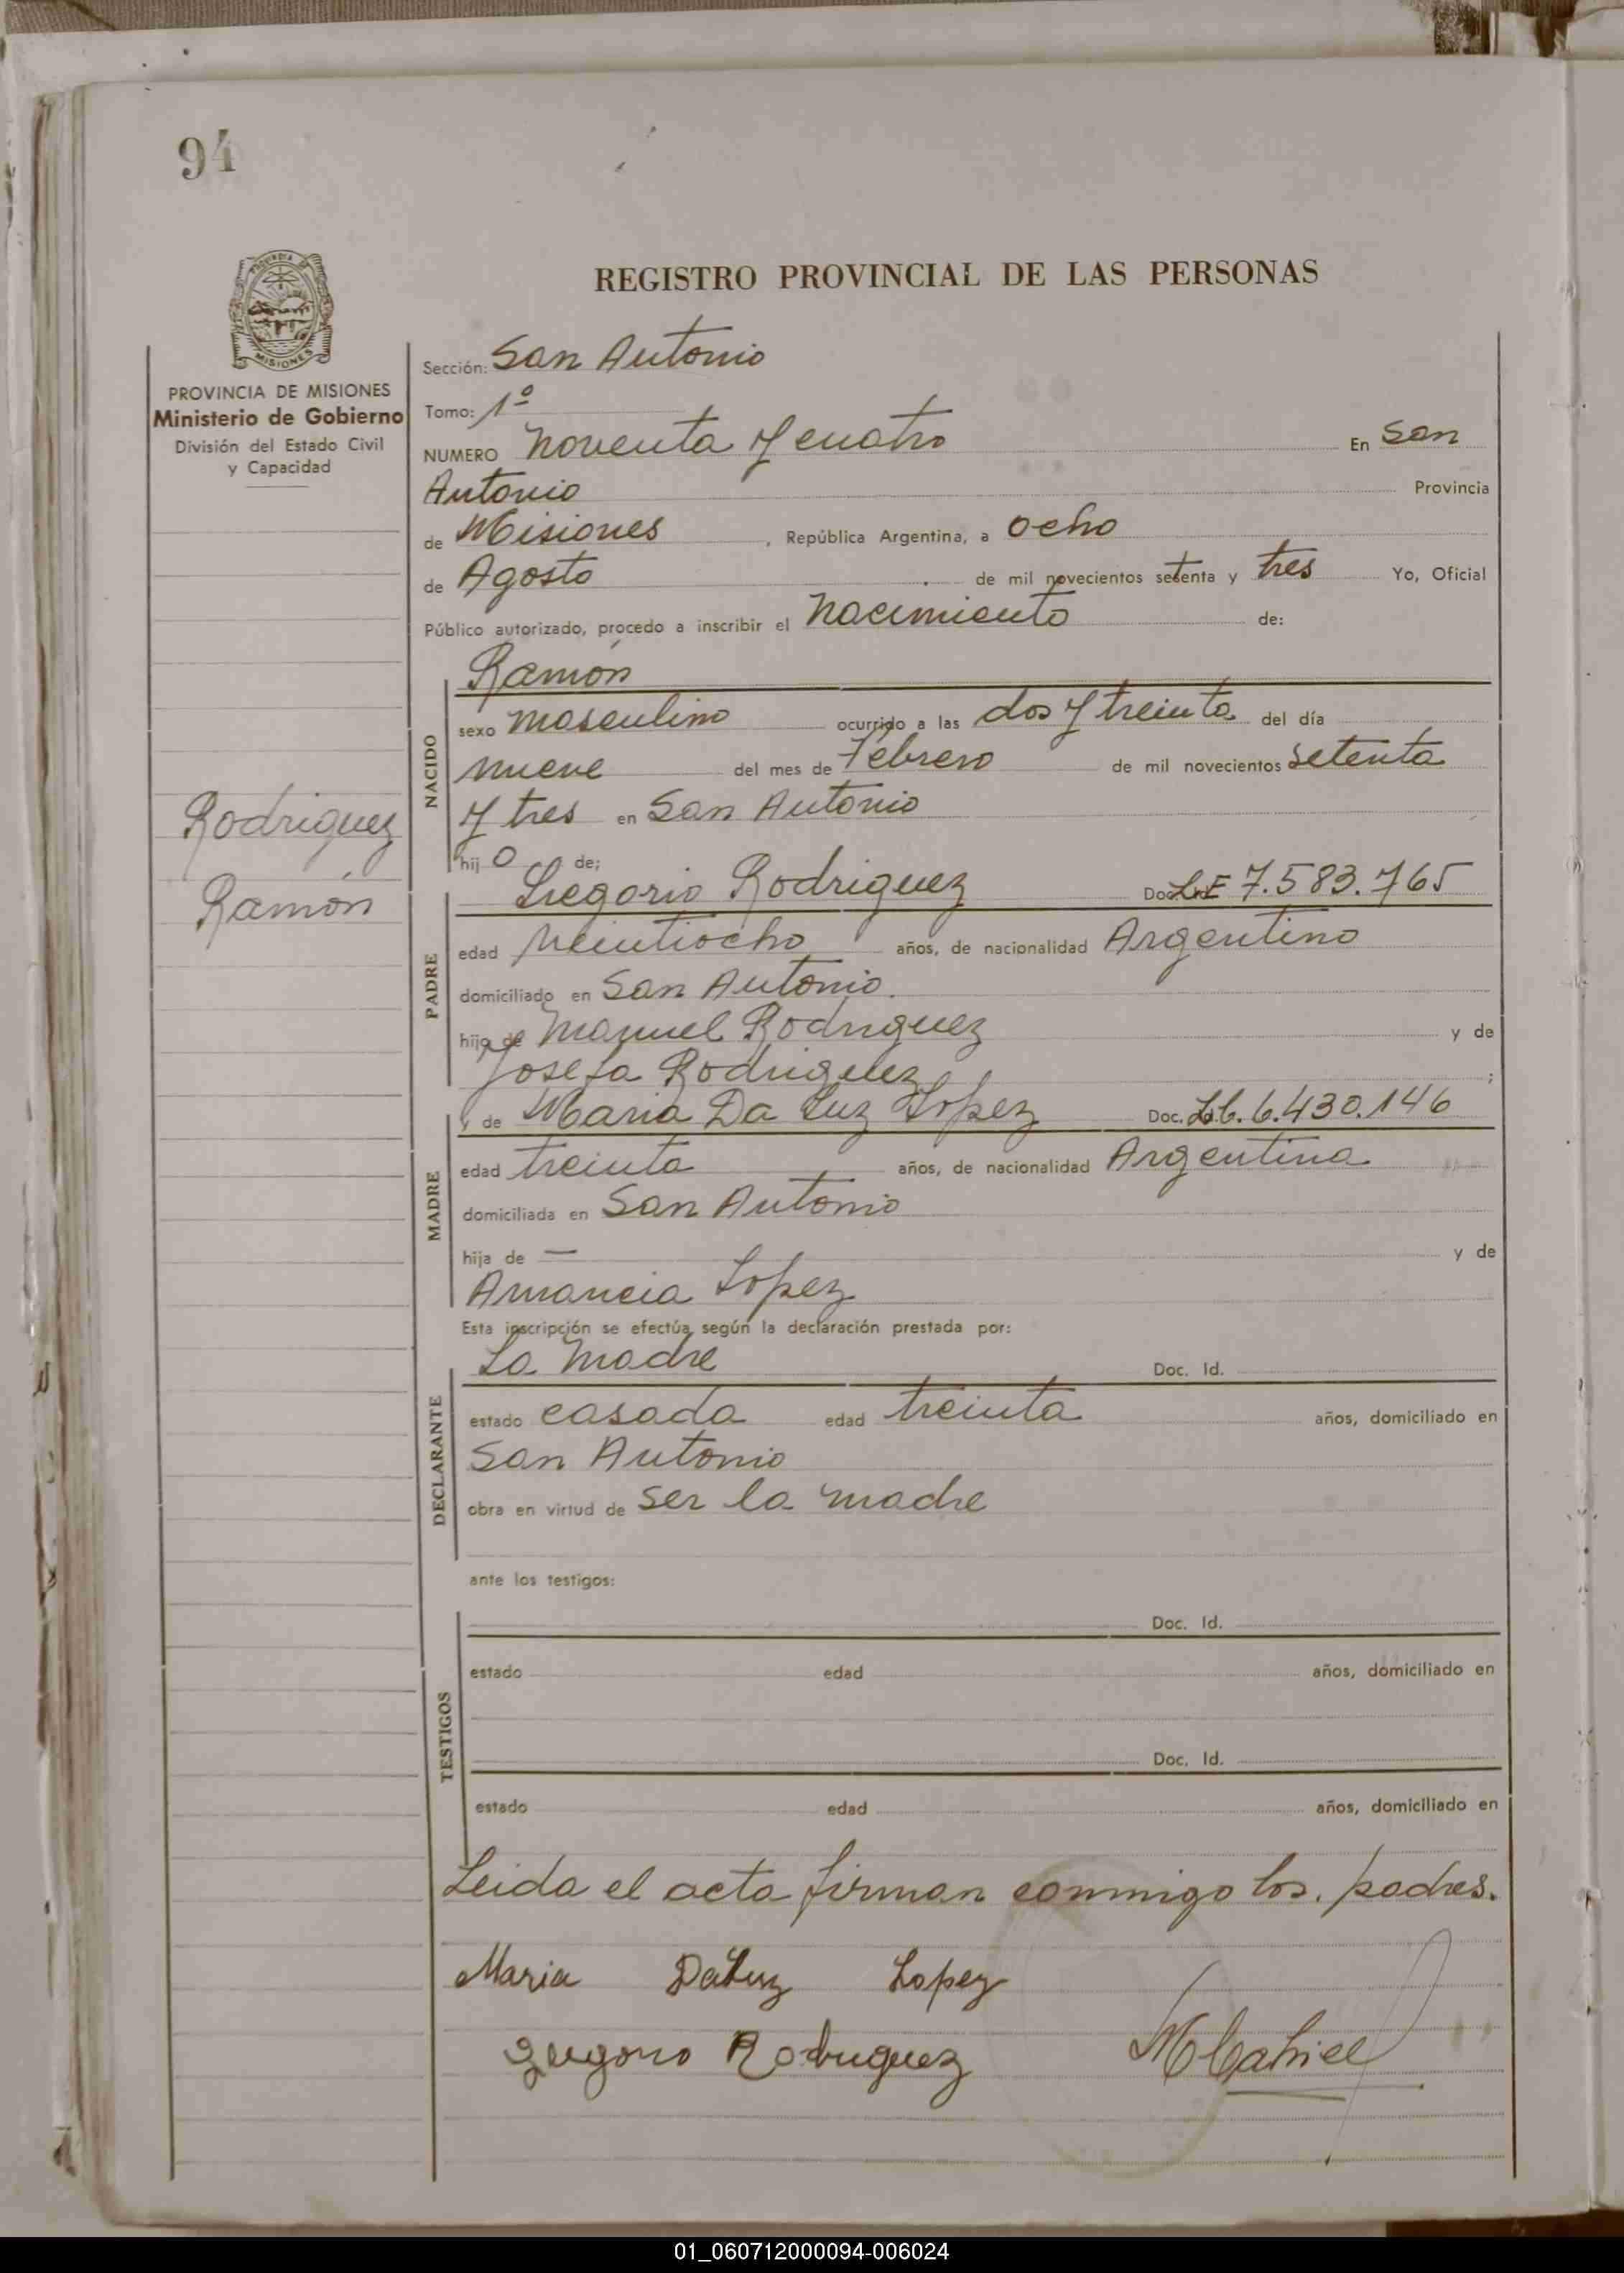 94
PROVINCIA DE MISIONES
Ministerio de Gobierno
División del Estado Civil
y Capacidad
Rodriguez
Ramón
REGISTRO PROVINCIAL DE LAS PERSONAS
Sección: San Antonio
Tomo: 1º
NUMERO Noventa y cuatro En San
Antonio Provincia
de Misiones , República Argentina, a ocho
de Agosto de mil novecientos setenta y tres Yo, Oficial
Público autorizado, procedo a inscribir el Nacimiento de:
NACIDO
Ramón
sexo masculino ocurrido a las dos y treinta del día
nueve del mes de Febrero de mil novecientos setenta
y tres en San Antonio
hij o de;
PADRE
Gregorio Rodriguez Doc. L.E 7.583.765
edad Veintiocho años, de nacionalidad Argentino
domiciliado en San Antonio.
hijo de Manuel Rodriguez y de
Josefa Rodriguez ;
MADRE
y de Maria Da Luz Lopez Doc. L.C. 6.430.146
edad treinta años, de nacionalidad Argentina
domiciliada en San Antonio
hija de — y de
Amancia Lopez
Esta inscripción se efectúa según la declaración prestada por:
DECLARANTE
La Madre Doc. Id.
estado casada edad treinta años, domiciliado en
San Antonio
obra en virtud de ser la madre
ante los testigos:
TESTIGOS
Doc. Id.
estado edad años, domiciliado en
Doc. Id.
estado edad años, domiciliado en
Leida el acta firman conmigo los. padres.
Maria Daluz Lopez
gregorio Rodriguez
01_060712000094-006024